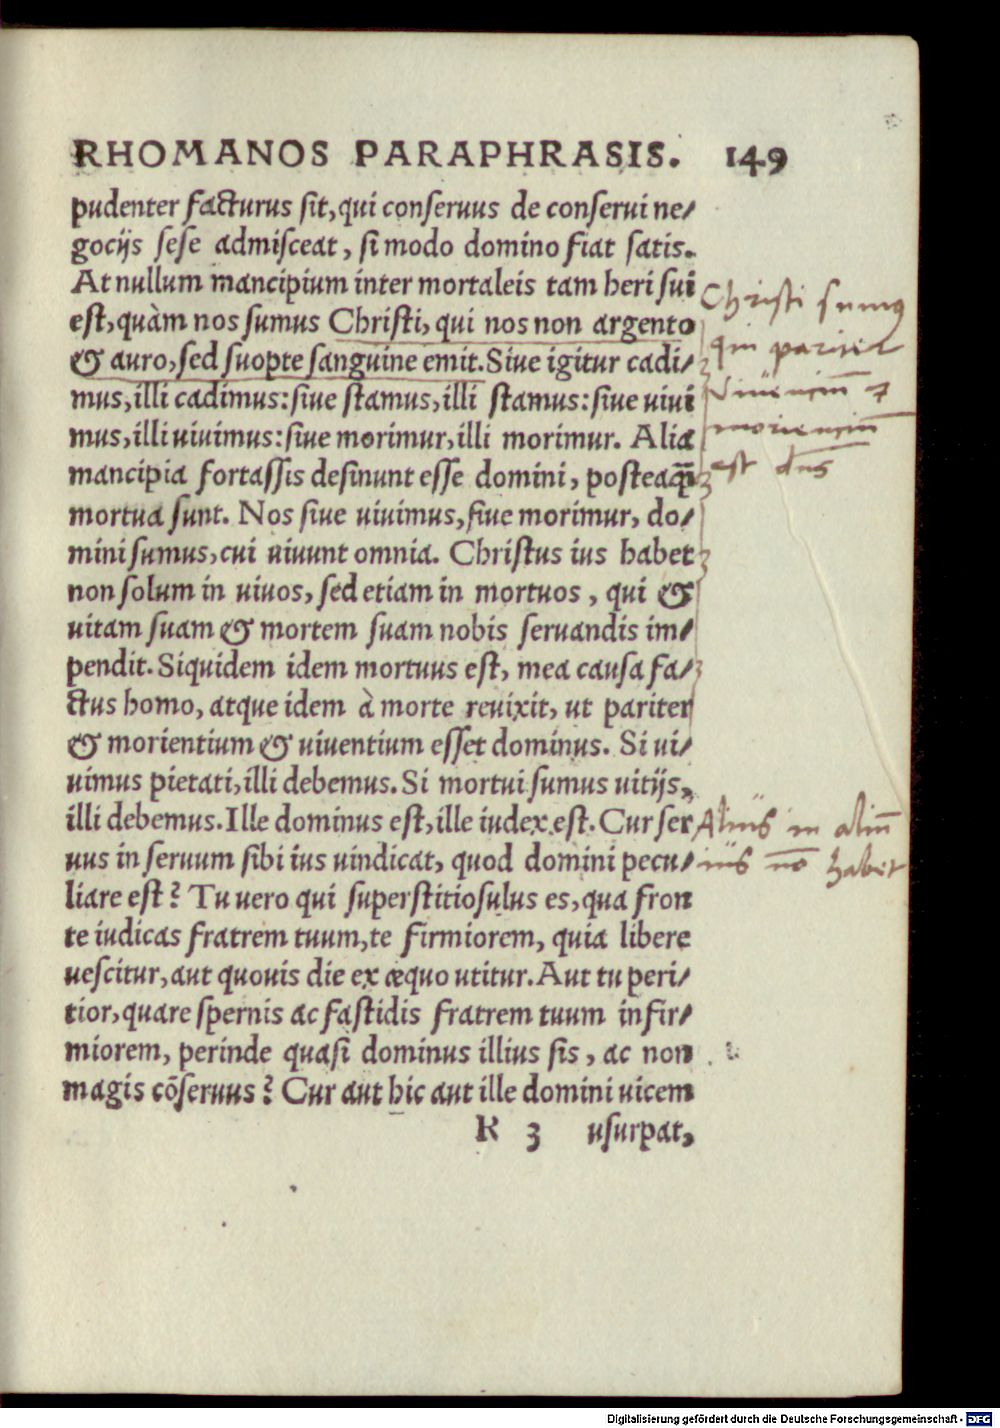 RHOMANOS PARAPHRASIS. 149
pudenter facturus sit, qui conseruus de conserui ne⸗
gocijs sese admisceat, si modo domino fiat satis.
At nullum mancipium inter mortaleis tam heri sui
est, quàm nos sumus Christi, qui nos non argento
& auro, sed suopte sanguine emit. Siue igitur cadi⸗
mus, illi cadimus: siue stamus, illi stamus: siue uiui
mus, illi uiuimus: siue morimur, illi morimur. Alia
mancipia fortassis desinunt esse domini, posteaq̃
mortua sunt. Nos siue uiuimus, siue morimur, do⸗
mini sumus, cui uiuunt omnia. Christus ius habet
non solum in uiuos, sed etiam in mortuos, qui &
uitam suam & mortem suam nobis seruandis im⸗
pendit. Siquidem idem mortuus est, mea causa fa⸗
ctus homo, atque idem à morte reuixit, ut pariter
& morientium & uiuentium esset dominus. Si ui⸗
uimus pietati, illi debemus. Si mortui sumus uitijs,
illi debemus. Ille dominus est, ille iudex est. Cur ser
uus in seruum sibi ius uindicat, quod domini pecu⸗
liare est? Tu uero qui superstitiosulus es, qua fron
te iudicas fratrem tuum, te firmiorem, quia libere
uescitur, aut quouis die ex æquo utitur. Aut tu peri⸗
tior, quare spernis ac fastidis fratrem tuum infir⸗
miorem, perinde quasi dominus illius sis, ac non
magis cõseruus? Cur aut hic aut ille domini uicem
K 3 usurpat,
Christi sumus
qui pariter
viuenciũ et
morienciũ
est dñs
Alius in aliũ
ius nō habet
Digitalisierung gefördert durch die Deutsche Forschungsgemeinschaft - DFG